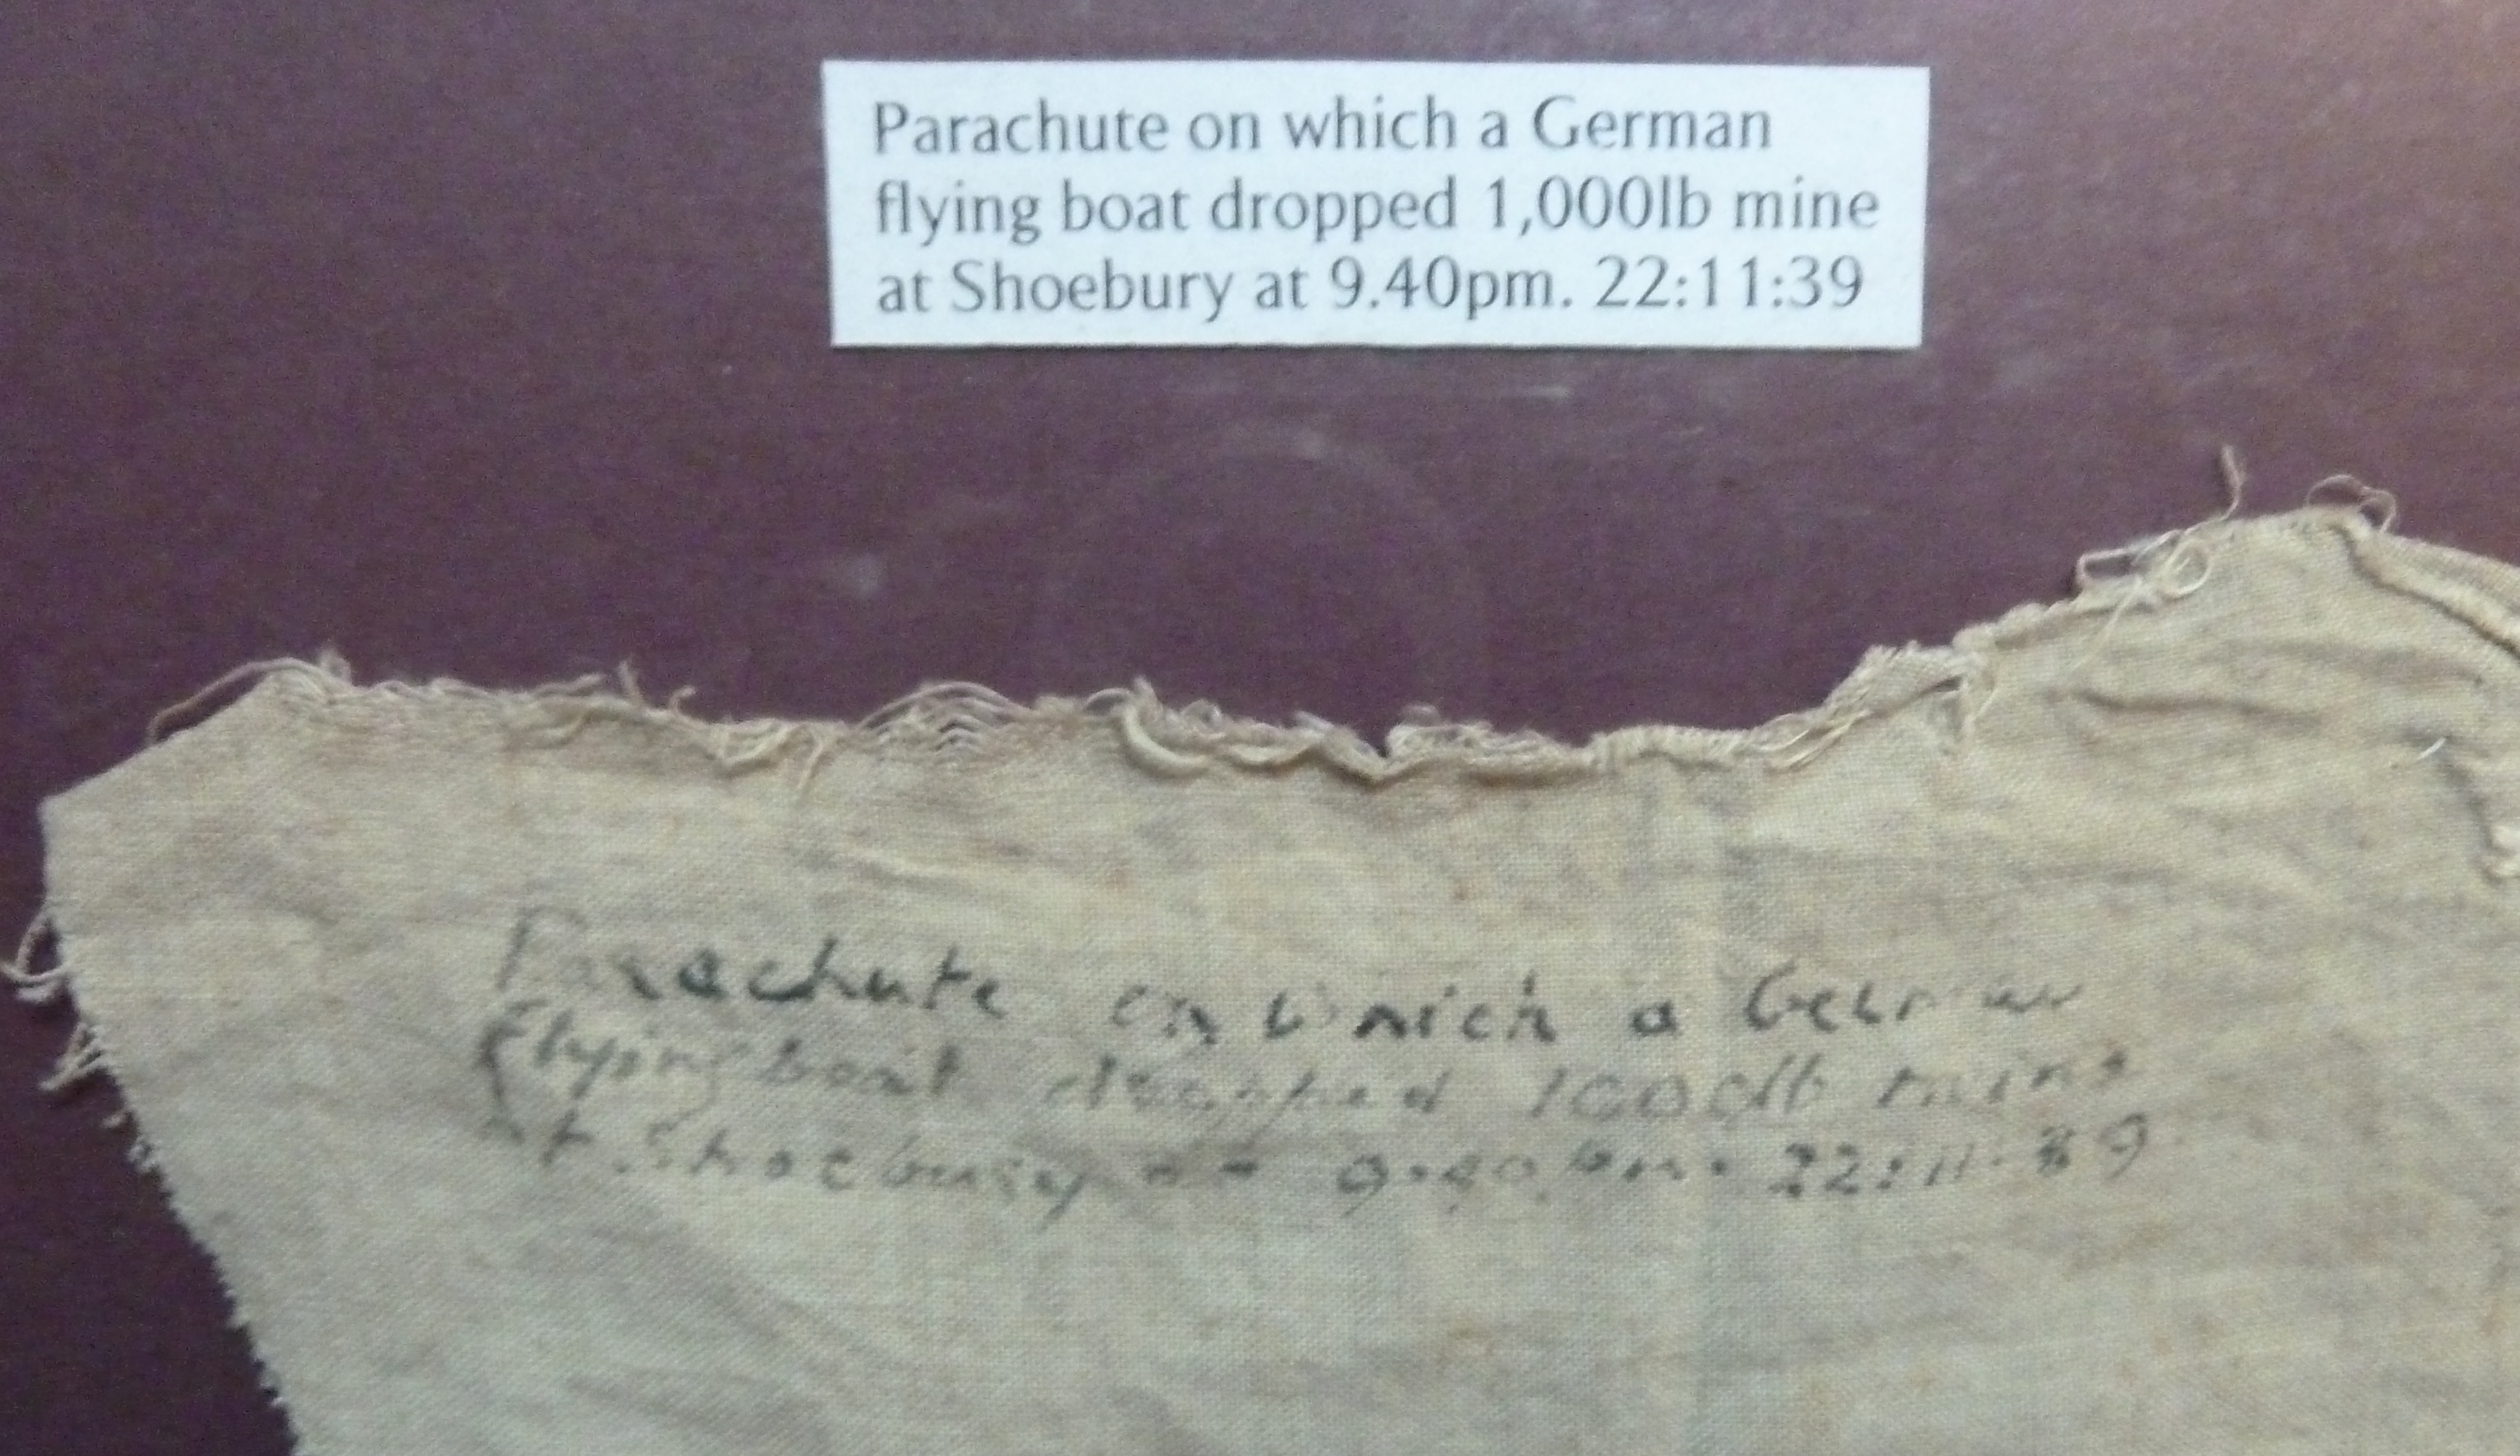 Parachute on which a German
flying boat dropped 1,000lb mine
at Shoebury at 9.40pm. 22:11:39
Parachute on which a German
flying boat dropped 1000lb mine
at Shoebury at 9.40pm. 22:11:39